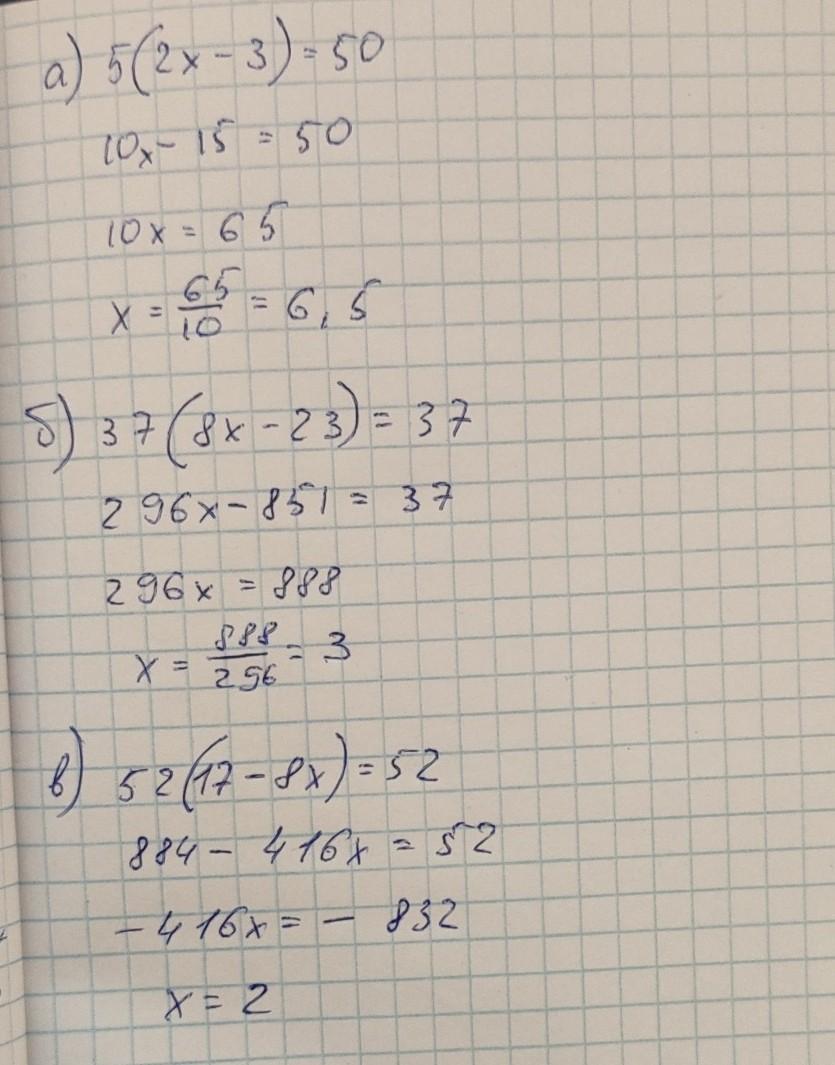 а) 5(2x - 3) = 50
10x - 15 = 50
10x = 65
x = 65/10 = 6,5
б) 37(8x - 23) = 37
296x - 851 = 37
296x = 888
x = 888/296 = 3
в) 52(17 - 8x) = 52
884 - 416x = 52
-416x = - 832
x = 2